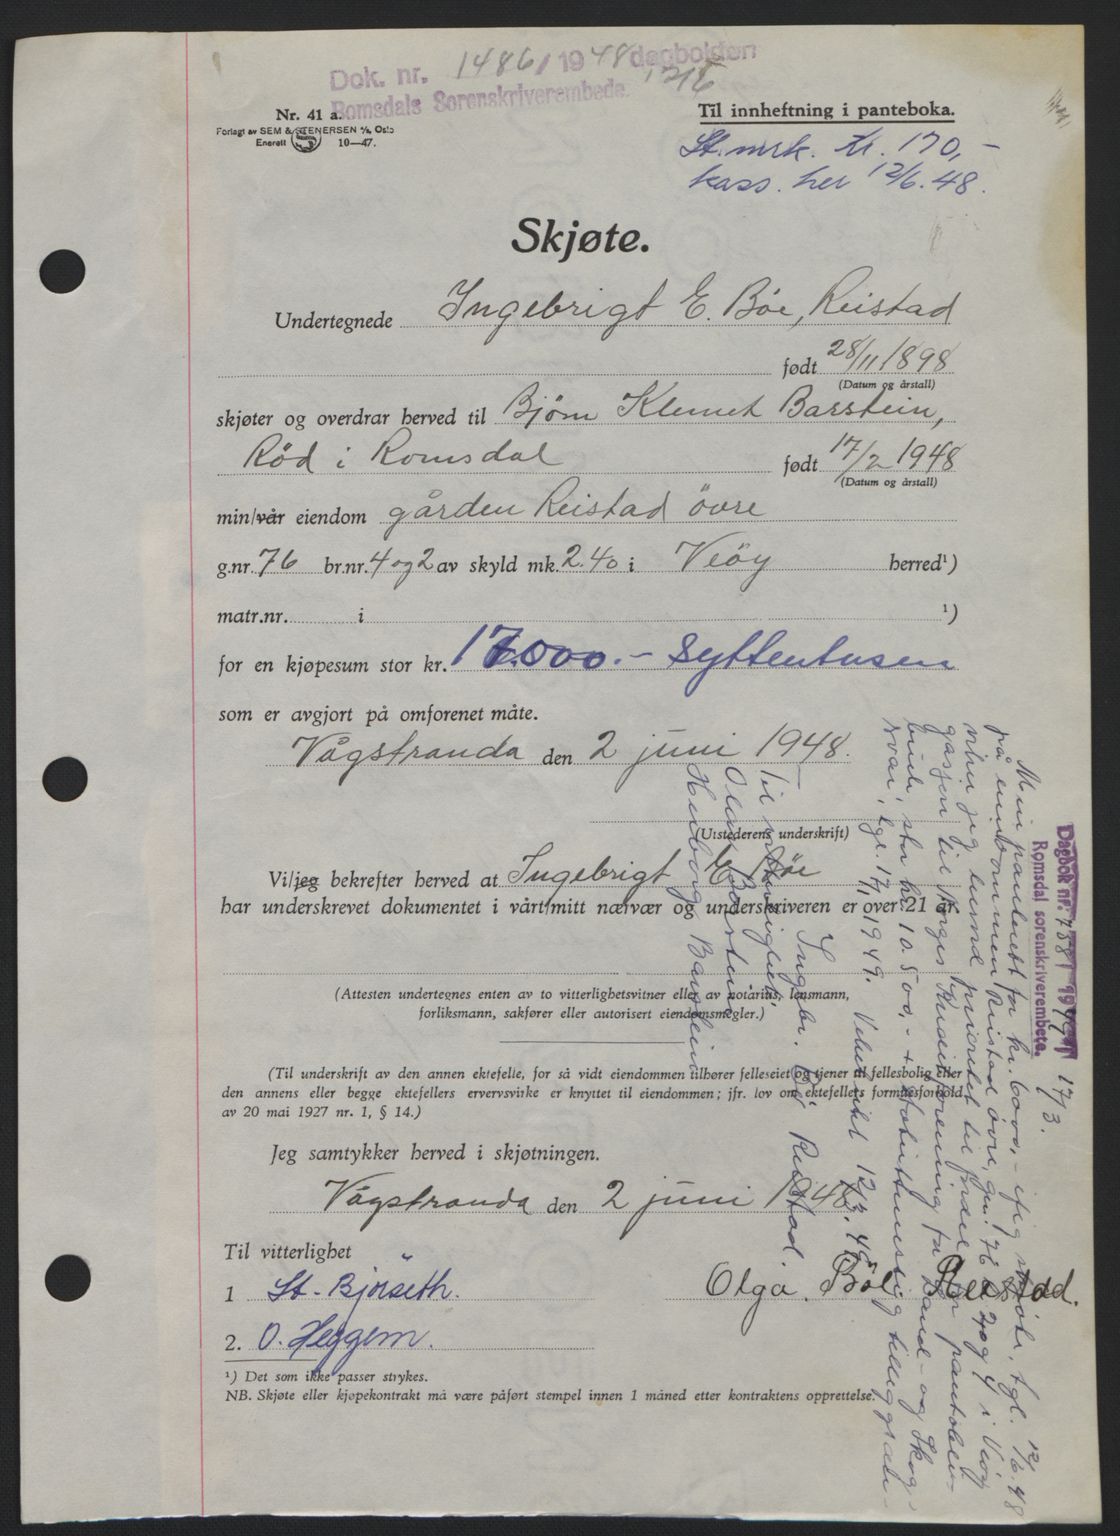 Dok. nr. 1486 / 1948 dagbokden
Romsdals Sorenskriverembede. 12/6
Nr. 41 a.
Forlagt av SEM & STENERSEN A/S, Oslo
Enerett 10—47.
Til innheftning i panteboka.
St.mrk. kr. 170,-
kass. her 12/6.48.
Skjøte.
Undertegnede Ingebrigt E. Böe, Reistad
født 28/11 1898
(Datum og årstall)
skjøter og overdrar herved til Bjørn Klemet Barstein,
Röd i Romsdal født 17/2 1948
(Datum og årstall)
min/vår eiendom gården Reistad övre
g.nr. 76 br.nr. 4 og 2 av skyld mk. 2.40 i Veöy herred¹)
matr.nr. i ¹)
for en kjøpesum stor kr. 17.000.- Syttentusen
som er avgjort på omforenet måte.
Vågstranda den 2 juni 1948.
(Utstederens underskrift)
Vi/jeg bekrefter herved at Ingebrigt E Böe
har underskrevet dokumentet i vårt/mitt nærvær og underskriveren er over 21 år.
(Attesten undertegnes enten av to vitterlighetsvitner eller av notarius, lensmann,
forliksmann, sakfører eller autorisert eiendomsmegler.)
(Til underskrift av den annen ektefelle, for så vidt eiendommen tilhører felleseiet og tjener til fellesbolig eller
den annens eller begge ektefellers ervervsvirke er knyttet til eiendommen; jfr. lov om ektefellers formuesforhold
av 20 mai 1927 nr. 1, § 14.)
Jeg samtykker herved i skjøtningen.
Vågstranda den 2 juni 1948
Til vitterlighet
1 St. Bjørseth.
Olga. Böe Reistad.
2. O. Heggem.
¹) Det som ikke passer strykes.
NB. Skjøte eller kjøpekontrakt må være påført stempel innen 1 måned etter kontraktens opprettelse.
Dagbok nr. 788 / 1949
Romsdal sorenskriverembete. 17/3.
Min panterett for kr. 6000,- ifg skjøte, tgl. 12/6.48
på eiendommen Reistad övre, gnr. 76 2 og 4 i Veöy
viker jeg herved prioritet til fordel for pantobli-
gasjon til Norges Kredittforening for Land- og Skog-
bruk, stor kr. 10.500,- + statuttmessig tilleggsan-
svar, tgl. 17/1 1949. Veblungsnes 12/3.49.
Ingebr. Böe Reistad.
Til vitterlighet:
Olav Barstein
Herborg Barstein